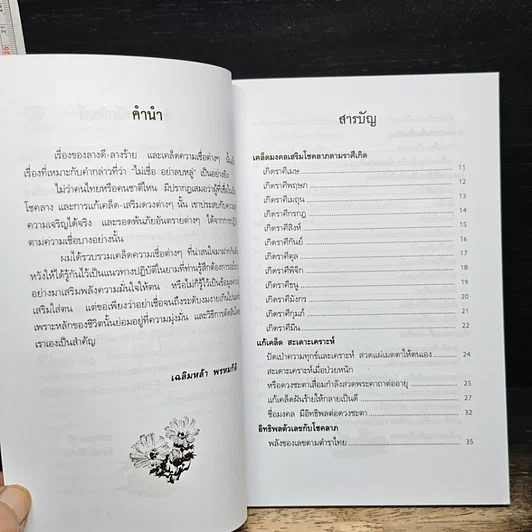 คำนำ
เรื่องของลางดี-ลางร้าย และเคล็ดความเชื่อต่างๆ
เรื่องที่เหมาะกับคำกล่าวที่ว่า "ไม่เชื่อ อย่าลบหลู่" เป็นอย่างยิ่ง
ไม่ว่าคนไทยหรือคนชาติไหน มีปรากฏเสมอว่าผู้ที่เชื่อใน
โชคลาง และการแก้เคล็ด-เสริมดวงต่างๆ นั้น เขาประสบกับความ
ความเจริญได้จริง และรอดพ้นภัยอันตรายต่างๆ ได้จากการปฏิบัติ
ตามความเชื่อบางอย่างนั้น
ผมได้รวบรวมเคล็ดความเชื่อต่างๆ ที่น่าสนใจมาฝากกัน
หวังให้ได้รู้กันไว้เป็นแนวทางปฏิบัติในยามที่ท่านรู้สึกต้องการ
อย่างมาเสริมพลังความมั่นใจให้ตน หรือไม่ก็รู้ไว้เป็นข้อมูล
เสริมใส่ตน แต่ขอเพียงว่าอย่าเชื่อจนถึงระดับงมงายเกินไป
เพราะหลักของชีวิตนั้นย่อมอยู่ที่ความมุ่งมั่น และวิธีการตัดสิน
เราเองเป็นสำคัญ
เฉลิมหล้า พรหมกัลป์
สารบัญ
เคล็ดมงคลเสริมโชคลาภตามราศีเกิด
เกิดราศีเมษ 11
เกิดราศีพฤษภ 12
เกิดราศีเมถุน 13
เกิดราศีกรกฎ 14
เกิดราศีสิงห์ 15
เกิดราศีกันย์ 16
เกิดราศีตุล 17
เกิดราศีพิจิก 18
เกิดราศีธนู 19
เกิดราศีมังกร 20
เกิดราศีกุมภ์ 21
เกิดราศีมีน 22
แก้เคล็ด สะเดาะเคราะห์
ปัดเป่าความทุกข์และเคราะห์ สวดแผ่เมตตาให้ตนเอง 24
สะเดาะเคราะห์เมื่อป่วยหนัก
หรือดวงชะตาเสื่อมกำลังสวดพระคาถาต่ออายุ 25
แก้เคล็ดฝันร้ายให้กลายเป็นดี 27
ชื่อมงคล มีอิทธิพลต่อดวงชะตา 32
อิทธิพลตัวเลขกับโชคลาภ
พลังของเลขตามตำราไทย 35